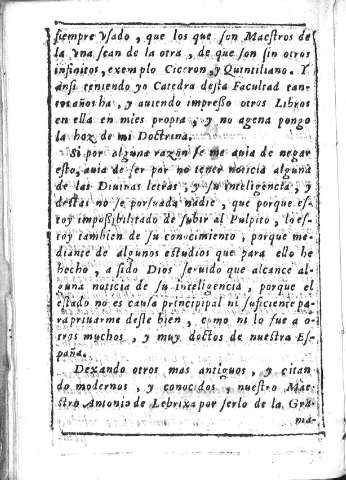 siempre vsado, que los que son Maestros de
la vna sean de la otra, de que son sin otros
infinitos, exemplo Ciceron, y Quintiliano. Y
ansi teniendo yo Catedra desta Facultad tan-
tos años ha, y auiendo impresso otros Libros
en ella en mies propia, y no agena pongo
la hoz de mi Doctrina.
Si por alguna razon se me auia de negar
esto, auia de ser por no tener noticia alguna
de las Diuinas letras, y su inteligencia, y
destas no se persuada nadie, que porque es-
toy impossibilitado de subir al Pulpito, lo es-
toy tambien de su conocimiento, porque me-
diante de algunos estudios que para ello he
hecho, a sido Dios seruido que alcance al-
guna noticia de su inteligencia, porque el
estado no es causa principipal ni suficiente pa-
ra priuarme deste bien, como ni lo fue a o-
tros muchos, y muy doctos de nuestra Es-
paña.
Dexando otros mas antiguos, y citan
do modernos, y conocidos, nuestro Mae-
stro Antonio de Lebrixa por serlo de la Gra-
ma-